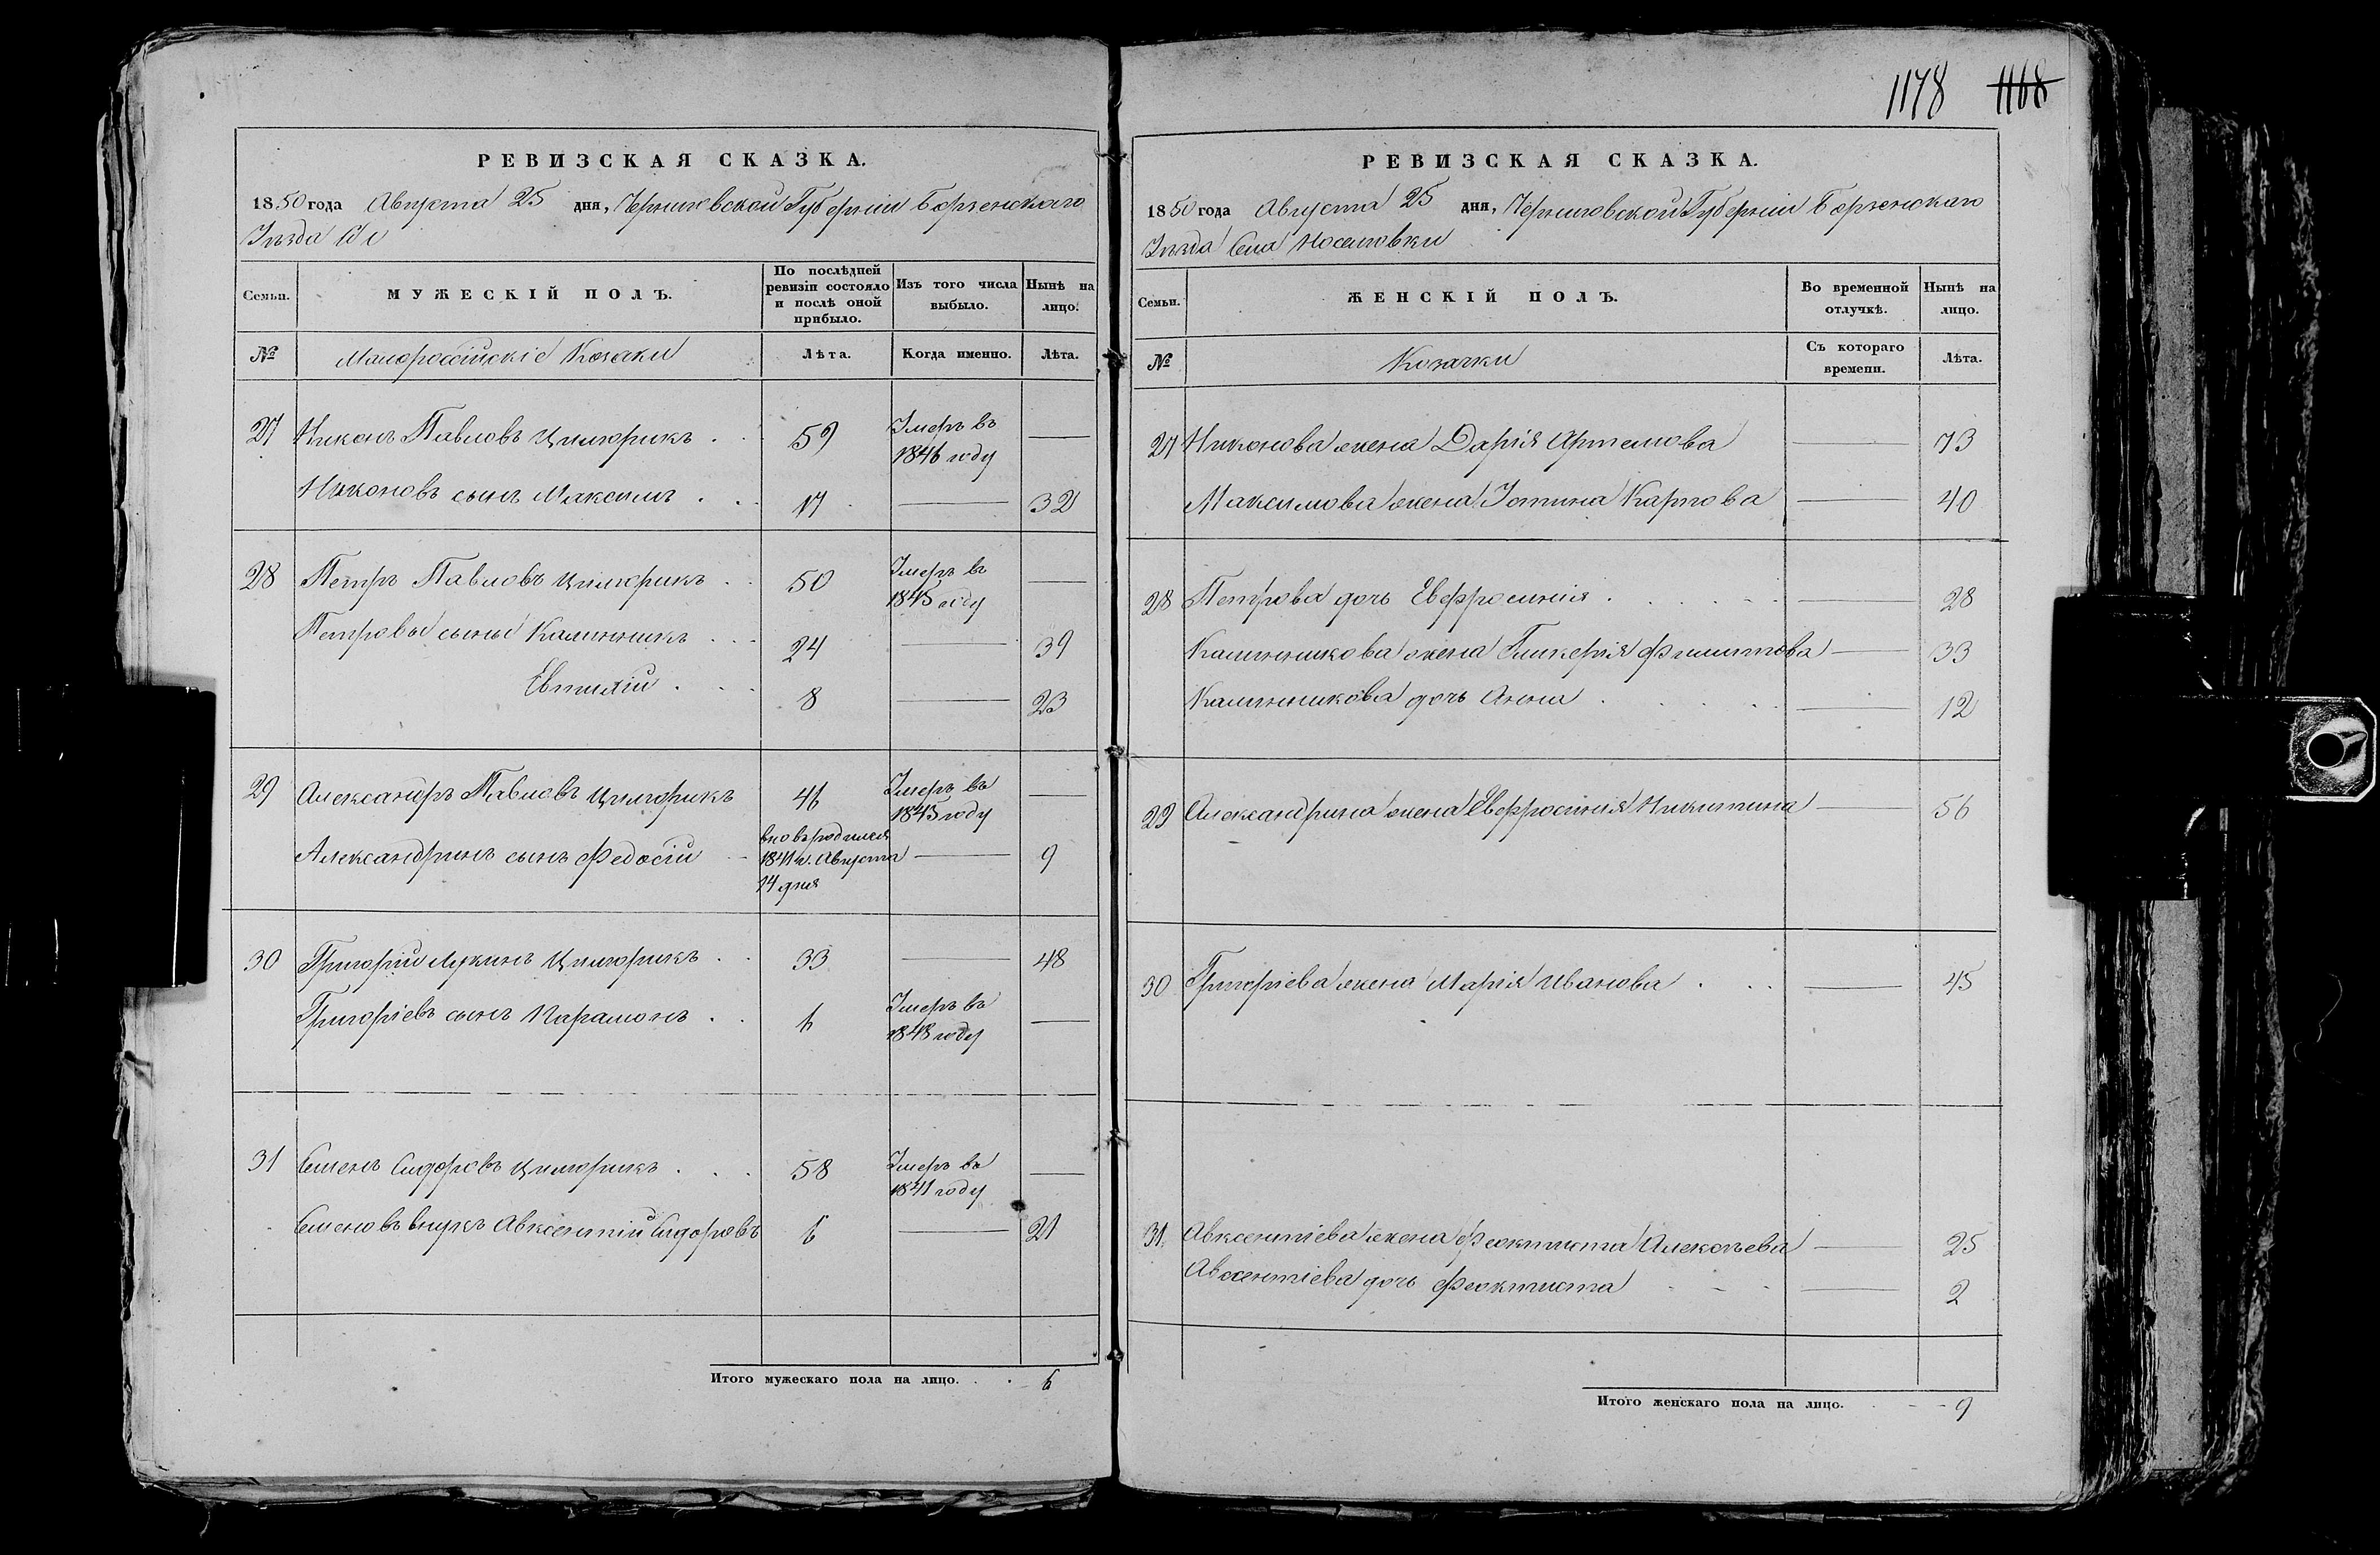 1178 1168
РЕВИЗСКАЯ СКАЗКА.
1850 года Августа 25 дня, Черниговской Губерніи Борзенскаго
Уѣзда
Семьи.
МУЖЕСКІЙ ПОЛЪ.
По послѣдней ревизіи состояло и послѣ оной прибыло.
Изъ того числа выбыло.
Нынѣ на лицо.
№ Малороссійскіе Козаки Лѣта. Когда именно. Лѣта.
27 Никонъ Павловъ Циморикъ . . 59 Умеръ въ 1846 году —
Никоновъ сынъ Максимъ . . 17 — 32
28 Петръ Павловъ Циморикъ . . 50 Умеръ въ 1845 году —
Петровы сыны Калинникъ . . . 24 — 39
Евтихій . . . 8 — 23
29 Александръ Павловъ Циморикъ 46 Умеръ въ 1845 году —
Александринъ сынъ Федосій — вновь родился 1841 г. Августа 14 дня — 9
30 Григорій Лукинъ Циморикъ . . 33 — 48
Григоріевъ сынъ Парамонъ . . 6 Умеръ въ 1848 году —
31 Семенъ Сидоровъ Циморикъ . . . 58 Умеръ въ 1841 году —
Семеновъ внукъ Авксентій Сидоровъ 6 — 21
Итого мужескаго пола на лицо. . . 6
РЕВИЗСКАЯ СКАЗКА.
1850 года Августа 25 дня, Черниговской Губерніи Борзенскаго
Уѣзда Села Носеловки
Семьи.
ЖЕНСКІЙ ПОЛЪ.
Во временной отлучкѣ.
Нынѣ на лицо.
№ Козачки Съ котораго времени. Лѣта.
27 Никонова жена Дарія Артемова — 73
Максимова жена Устина Карпова — 40
28 Петрова дочь Евфросинія . . . . . — 28
Калинникова жена Гликерія Филиппова — 33
Калинникова дочь Анна . . . . . — 12
29 Александрина жена Евфросинія Никитина — 56
30 Григоріева жена Марія Иванова . . . — 45
31 Авксентіева жена Феоктиста Алексѣева — 25
Авксентіева дочь Феоктиста - - - — 2
Итого женскаго пола на лицо. - - 9